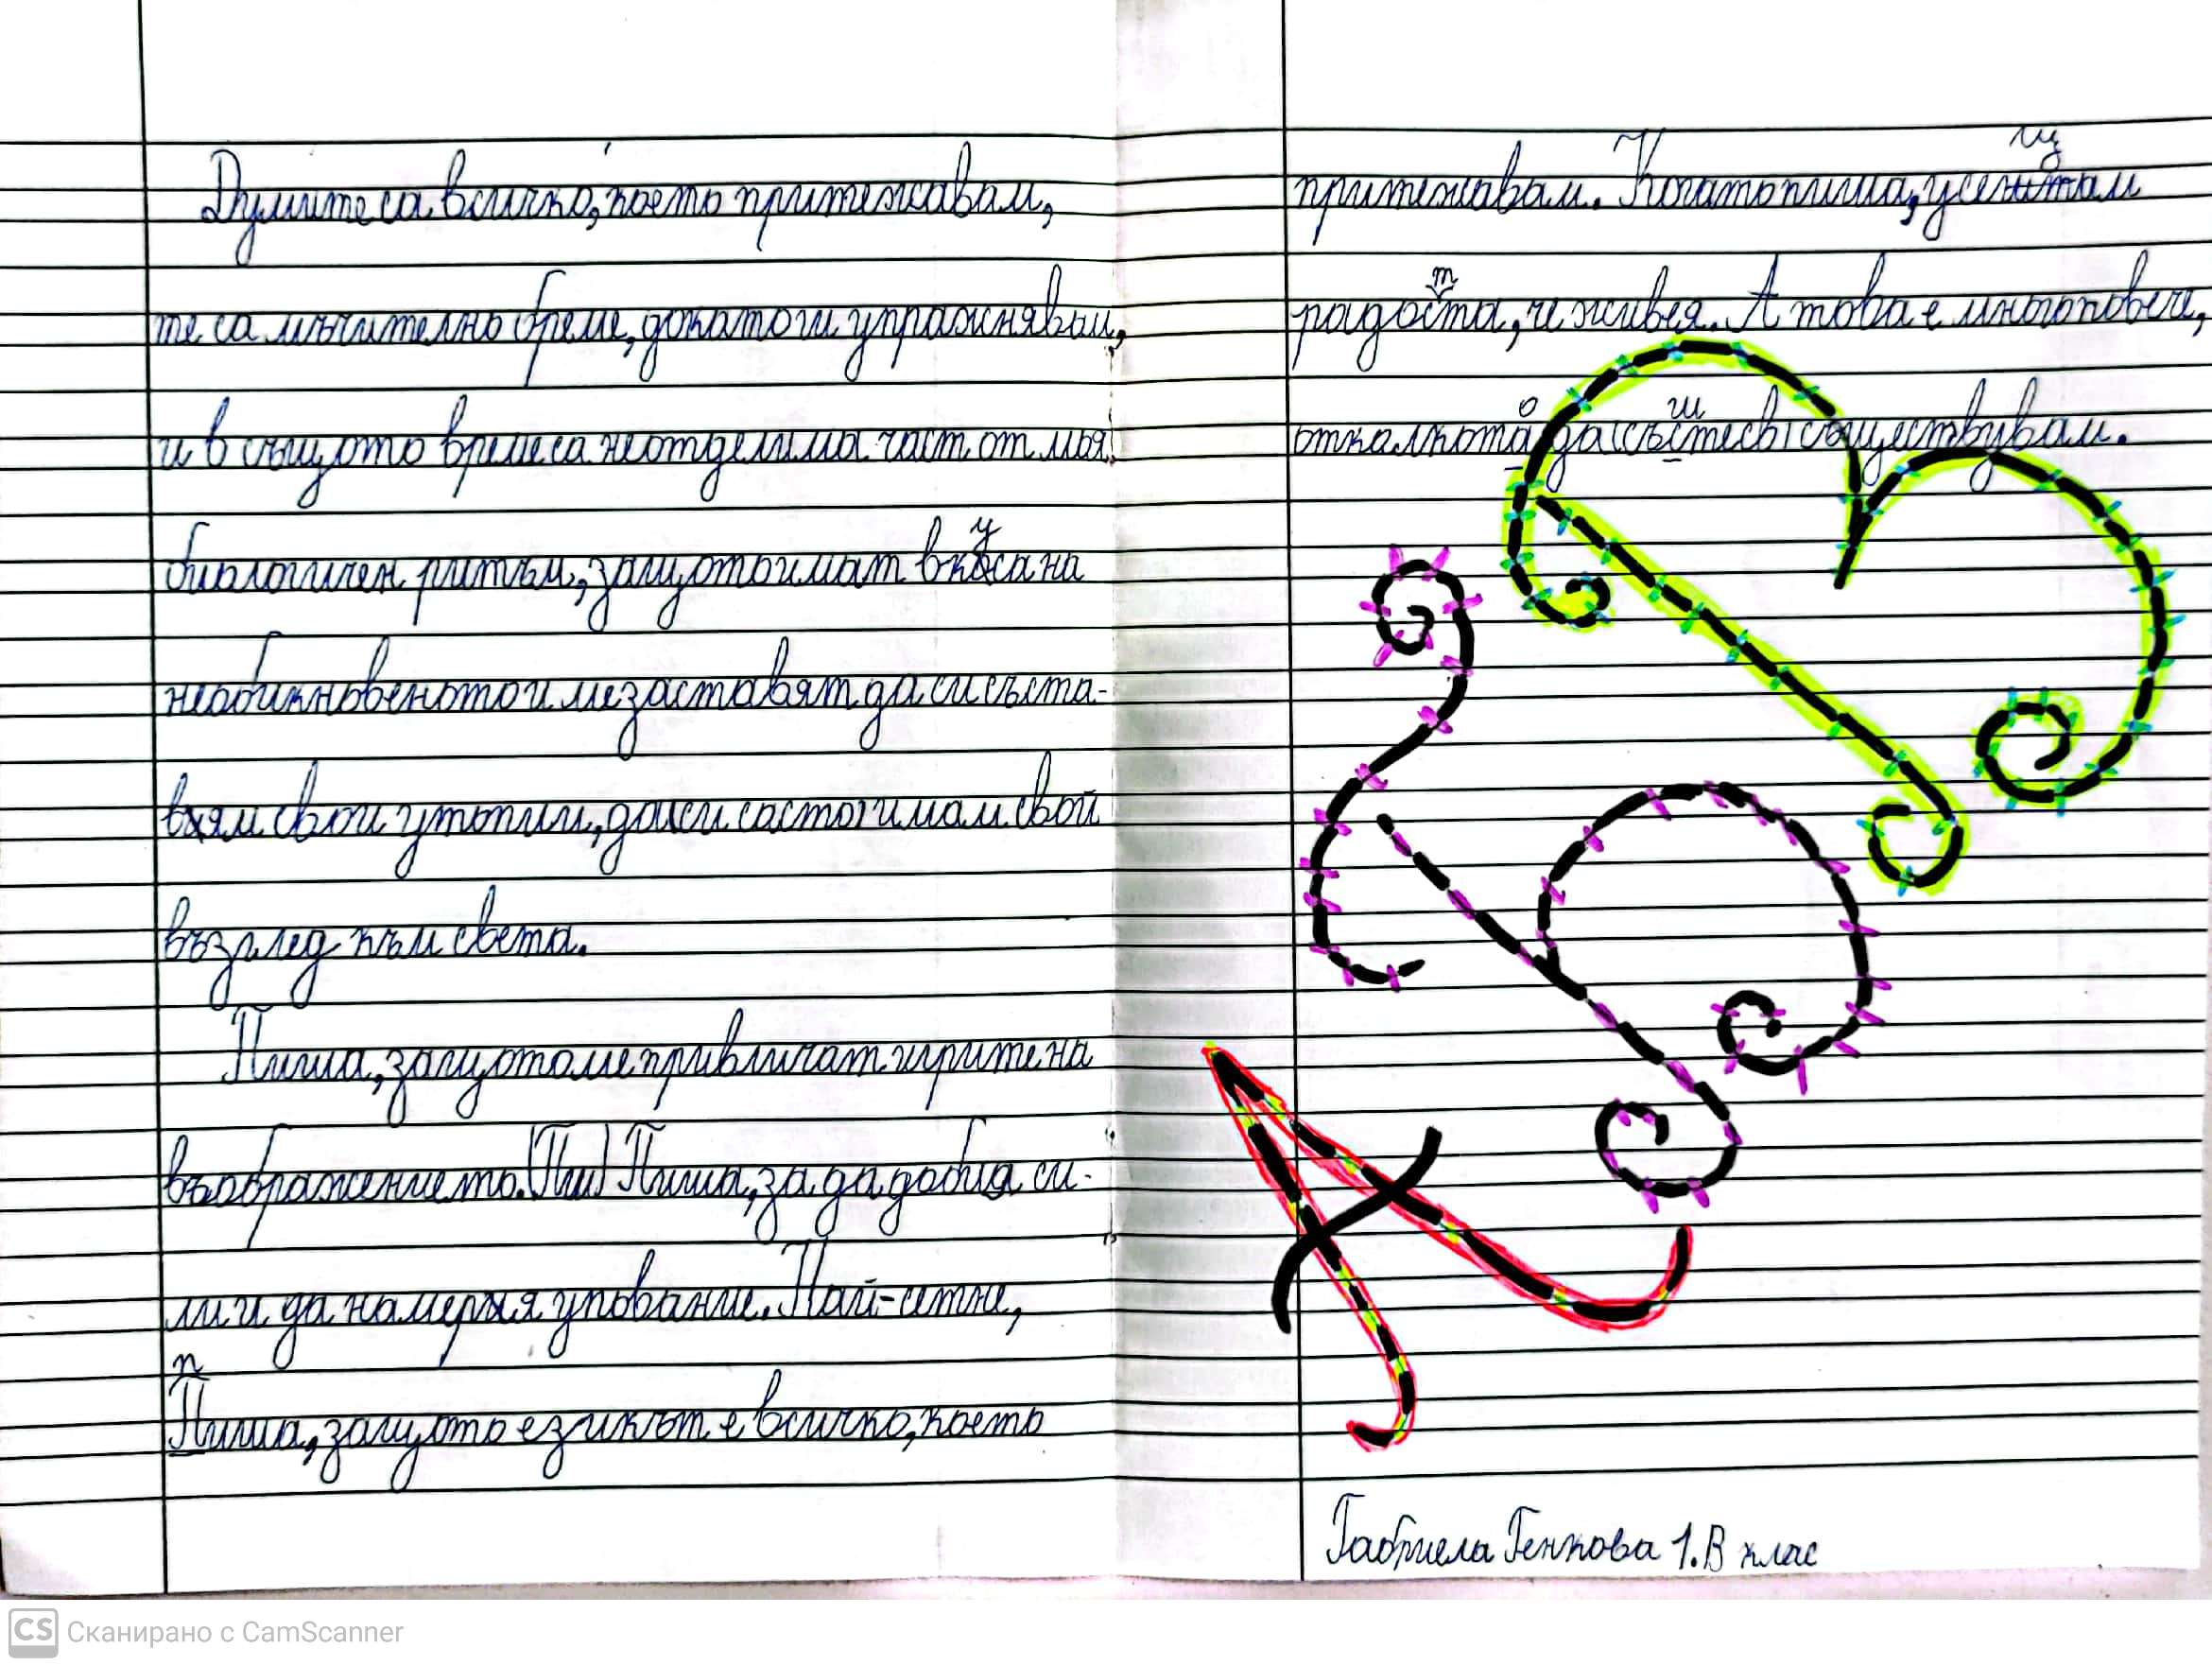 Думите са всичко, което притежавам,
те са мъчително бреме, докато ги упражнявам,
и в същото време са неотделима част от моя
биологичен ритъм, защото имат вкуса на
необикновеното и ме заставят да си съста-
вям свои утопии, да си состои имам свой
възглед към света.
Пиша, защото ме привличат игрите на
въображението. (Пи) Пиша, за да добия си-
ли и да намеря упование. Най-сетне,
пиша, защото езикът е всичко, което
притежавам. Когато пиша, усещам
радостта, че живея. А това е много повече,
отколкото да съществувам.
А
Б
В
Габриела Генкова 1.В клас
CS Сканирано с CamScanner